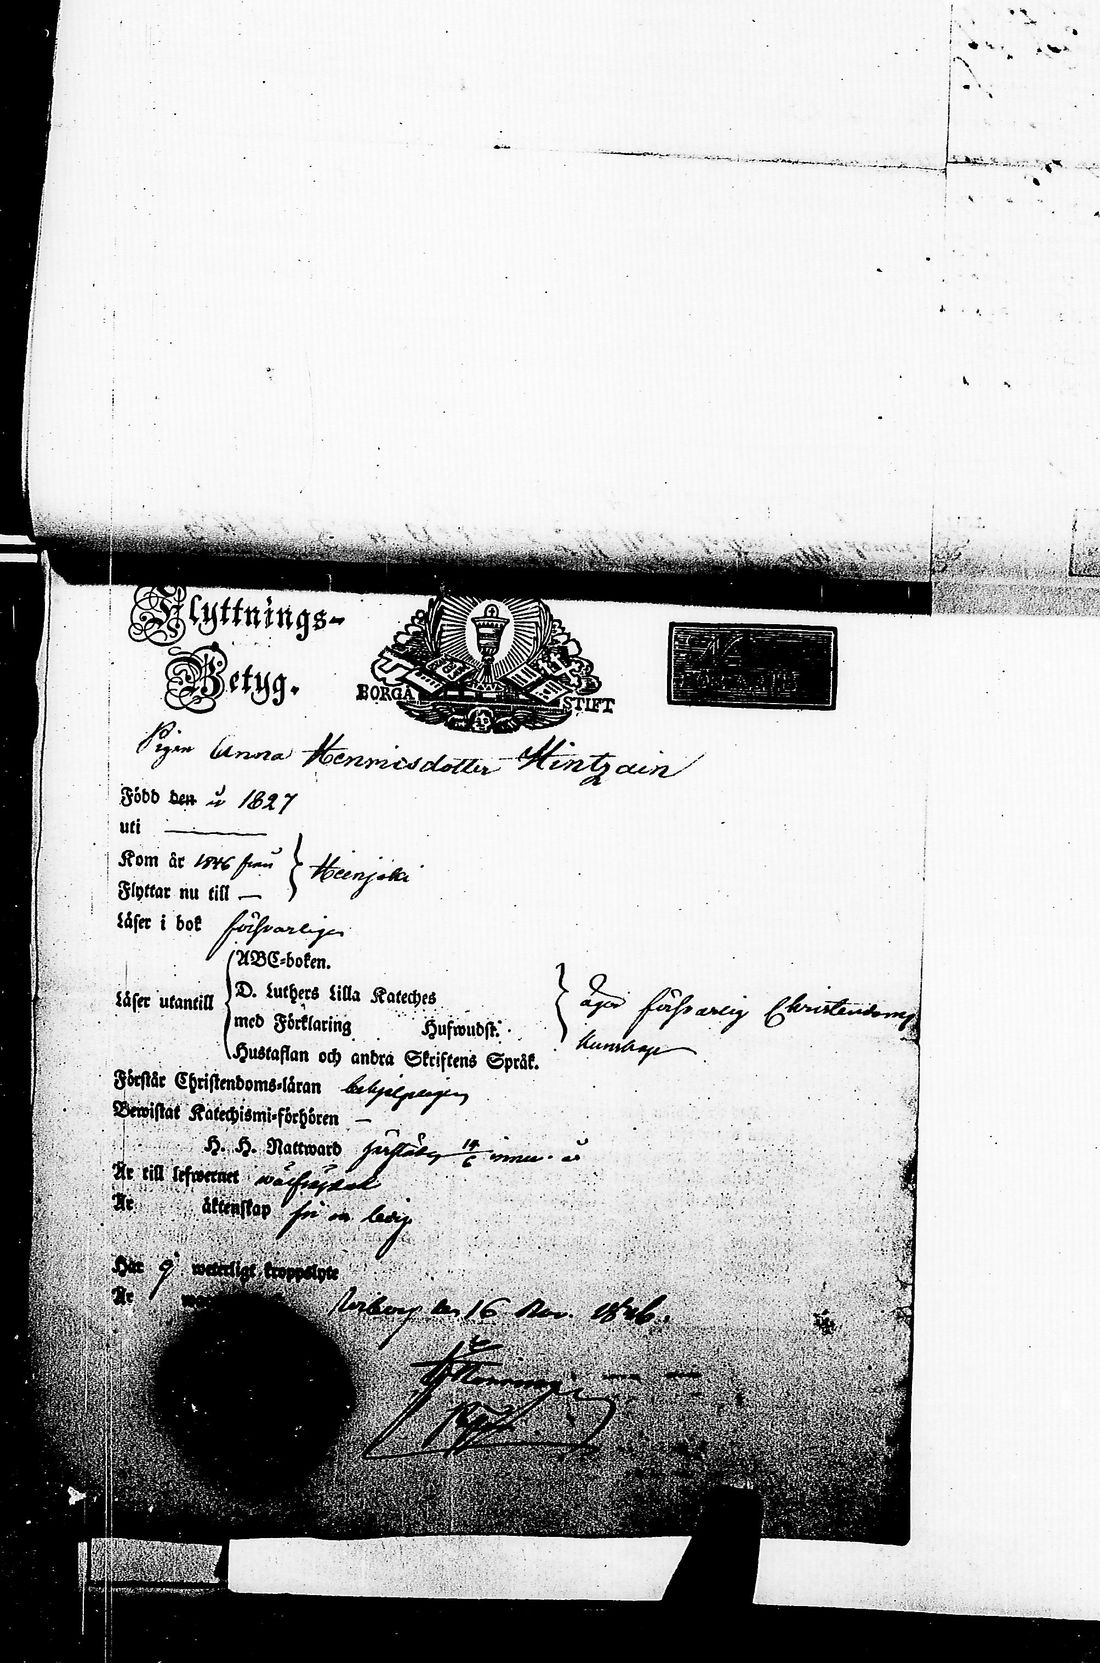 Flyttnings-
Betyg.
BORGÅ STIFT
Pigan Anna Henrricsdotter Hintzain
Född den 1827
uti
Kom år 1846 från
Heinjoki
Flyttar nu till —
Läser i bok försvarligen
ABC-boken.
Läser utantill
D. Luthers Lilla Kateches
med Förklaring Hufwudst.
Hustaflan och andra Skriftens Språk.
äger försvarlig Christendoms
kunskap
Förstår Christendoms-läran behjelpligen
Bewistat Katechismi-förhören —
H. H. Nattward
Är till lefwernet wälfrejdad
Är äktenskap fri och ledig
Har weterligt kroppslyte
Är
den 16 Nov. 1846.